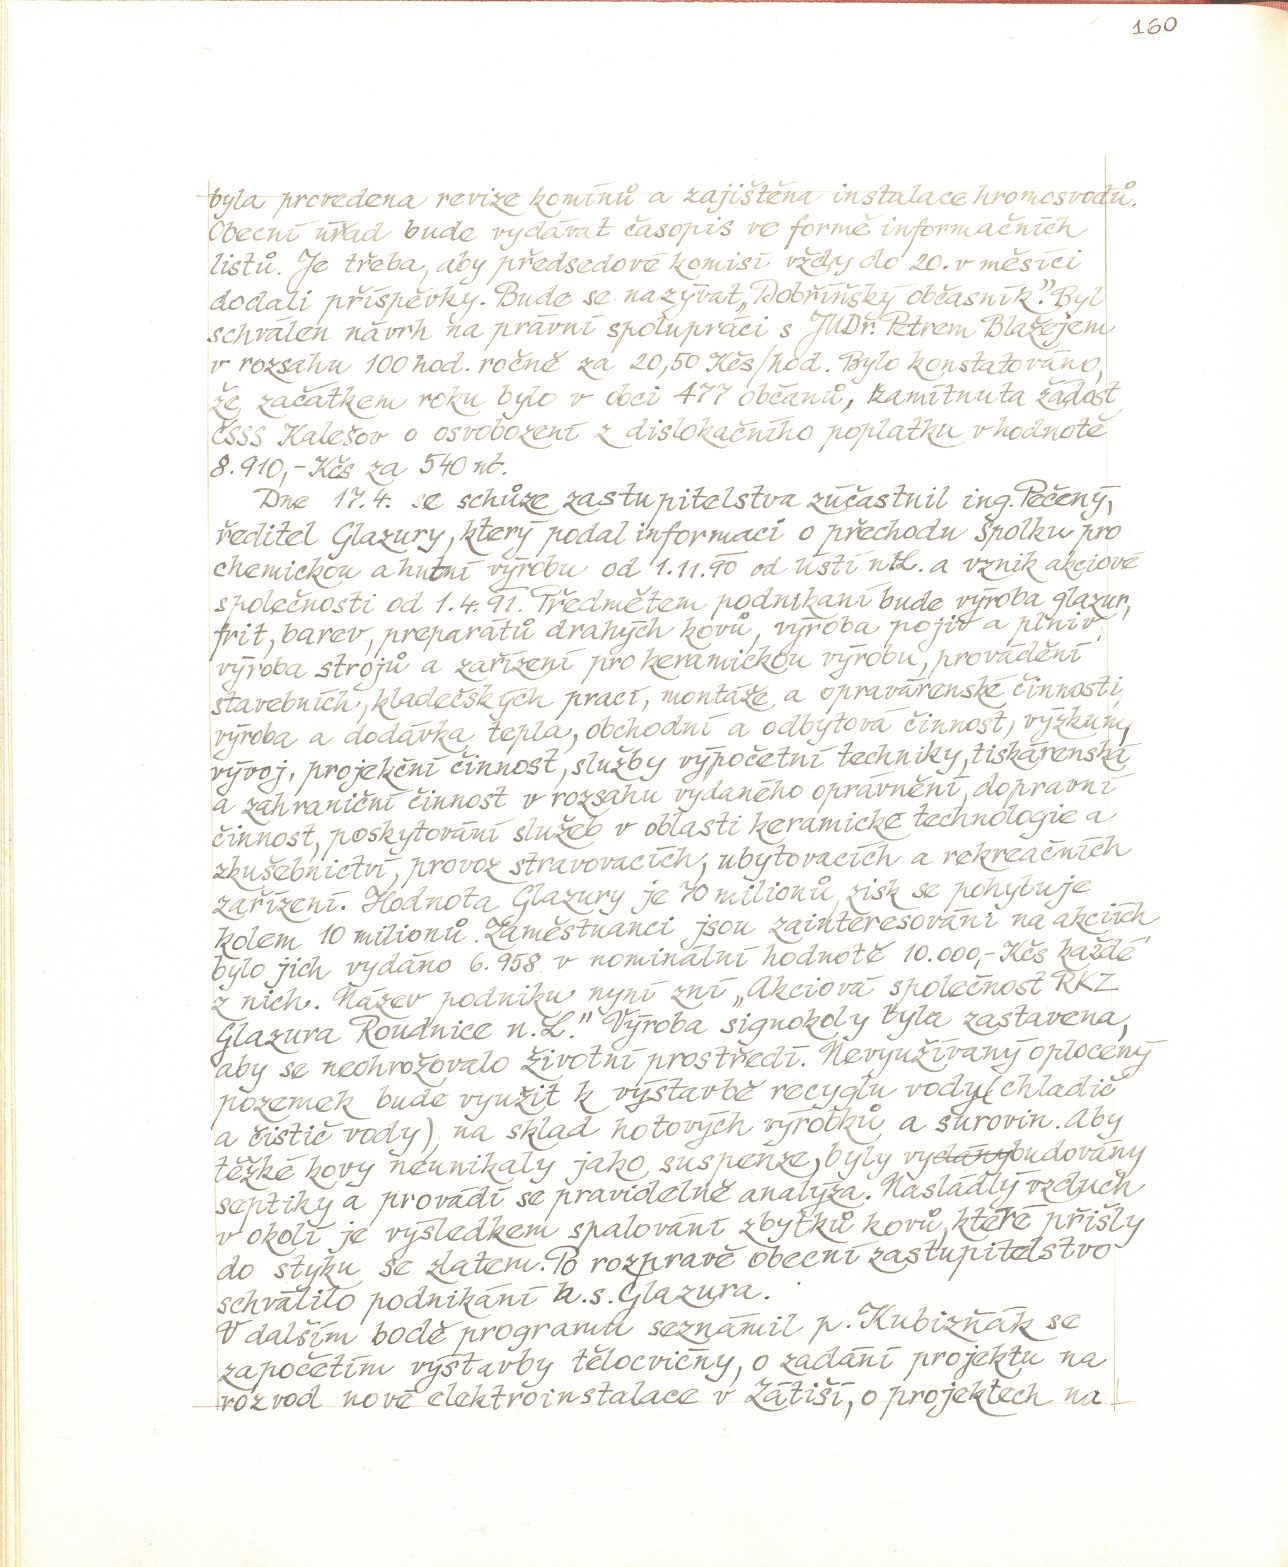 160
byla provedena revize komínů a zajištěna instalace hromosvodů.
Obecní úřad bude vydávat časopis ve formě informačních
listů. Je třeba, aby předsedové komisí vždy do 20. v měsíci
dodali příspěvky. Bude se nazývat „Dobříňský občasník". Byl
schválen návrh na právní spolupráci s JUDr. Petrem Blažejem
v rozsahu 100 hod. ročně za 20,50 Kčs/hod. Bylo konstatováno,
že začátkem roku bylo v obci 477 občanů, zamítnuta žádost
ČSSS Kalešov o osvobození z dislokačního poplatku v hodnotě
8.910,- Kčs za 540 vt.
Dne 17.4. se schůze zastupitelstva zúčastnil ing. Pečený,
ředitel Glazury, který podal informaci o přechodu Spolku pro
chemickou a hutní výrobu od 1.11.90 od Ústí n.L. a vznik akciové
společnosti od 1.4.91. Předmětem podnikání bude výroba glazur,
frit, barev, preparátů drahých kovů, výroba pojiv a plniv,
výroba strojů a zařízení pro keramickou výrobu, provádění
stavebních, kladečských prací, montáže a opravárenské činnosti,
výroba a dodávka tepla, obchodní a odbytová činnost, výzkum,
vývoj, projekční činnost, služby výpočetní techniky, tiskárenská
a zahraniční činnost v rozsahu vydaného oprávnění, dopravní
činnost, poskytování služeb v oblasti keramické technologie a
zkušebnictví, provoz stravovacích, ubytovacích a rekreačních
zařízení. Hodnota Glazury je 70 milionů, zisk se pohybuje
kolem 10 milionů. Zaměstnanci jsou zainteresováni na akciích,
bylo jich vydáno 6.958 v nominální hodnotě 10.000,- Kčs každé
z nich. Název podniku nyní zní „Akciová společnost RKZ
Glazura Roudnice n. L." Výroba signokoly byla zastavena,
aby se neohrožovalo životní prostředí. Nevyužívaný oplocený
pozemek bude využit k výstavbě recyglu vody (chladič
a čistič vody), na sklad hotových výrobků a surovin. Aby
těžké kovy neunikaly jako suspenze, byly vydánybudovány
septiky a provádí se pravidelně analýza. Nasládlý vzduch
v okolí je výsledkem spalování zbytků kovů, které přišly
do styku se zlatem. Po rozpravě obecní zastupitelstvo
schválilo podnikání a.s. Glazura.
V dalším bodě programu seznámil p. Kubizňák se
započetím výstavby tělocvičny, o zadání projektu na
rozvod nové elektroinstalace v Zátiší, o projektech na